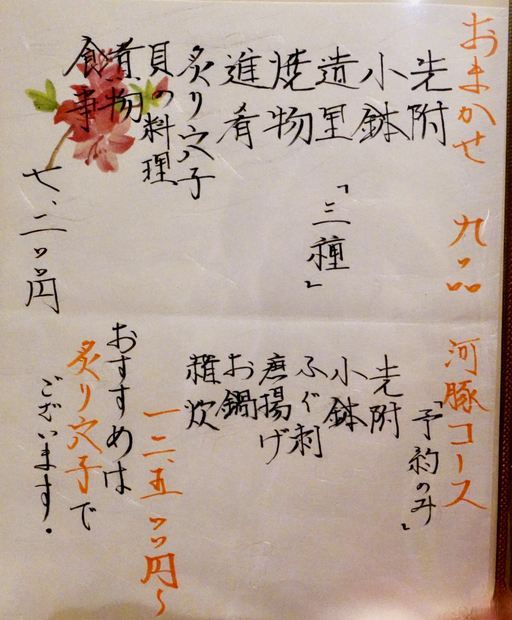 おまかせ 九品
先附
小鉢
造里「三種」
焼物
進肴
炙り穴子
貝の料理
煮物
食事
七、二〇〇円
河豚コース
「予約のみ」
先附
小鉢
ふぐ刺
唐揚げ
お鍋
雑炊
一二、五〇〇円〜
おすすめは
炙り穴子で
ございます.